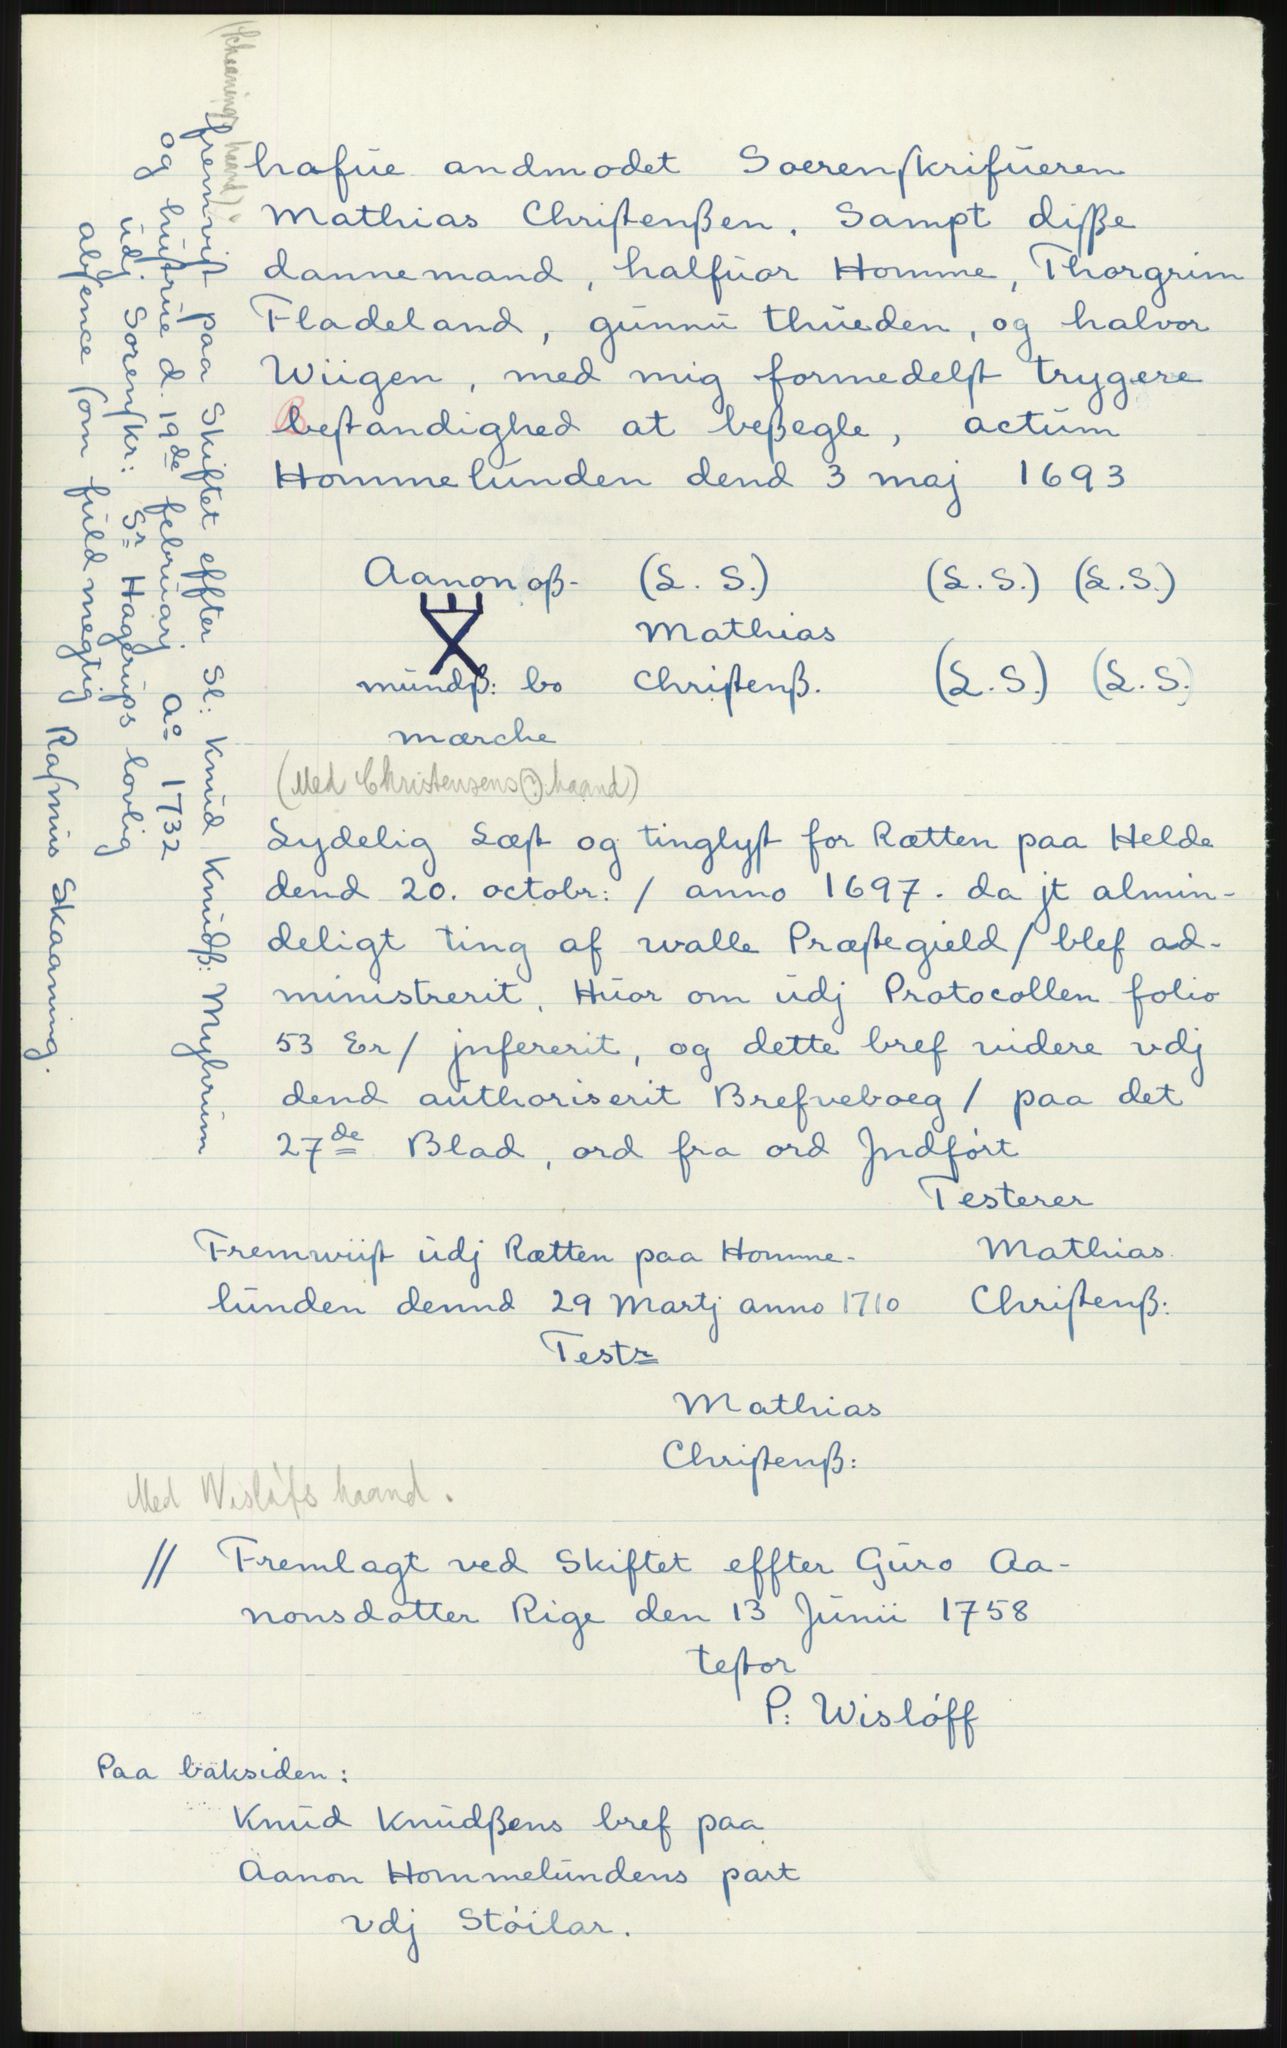 hafue andmodet Soerenſkrifueren
Mathias Chriſtenßen, Sampt diſße
dannemand, halfuor Homme, Thorgrim
Fladeland, gunnu thueden, og halvor
Wiigen, med mig formedelſt trygere
beſtandighed at beßegle, actum
Hommelunden dend 3 maj 1693
Aanon oß- (L. S.) (L. S.) (L. S.)
Mathias
mundß: bo Chriſtenß. (L. S.) (L. S.)
mærche
(Med Christensens(?) haand)
Lydelig Læſt og tinglyſt for Rætten paa Helde
dend 20. octobr: / anno 1697. da jt almin-
deligt ting af walle Præſtegield / blef ad-
miniſtrerit, Huor om udj Protocollen folio
53 Er / jnfererit, og dette bref videre vdj
dend authoriserit Brefveboeg / paa det
27de Blad, ord fra ord Jndfórt
Testerer
Fremwiiſt udj Rætten paa Homme- Mathias
lunden dennd 29 Martj anno 1710 Chriſtenß:
Testr
Mathias
Chriſtenß:
Med Wislófs haand.
// Fremlagt ved Skiftet effter Guro Aa-
nonsdatter Rige den 13 Junii 1758
teſtor
P: Wislóff
Paa baksiden:
Knud Knudßens bref paa
Aanon Hommelundens part
vdj Stóilar.
(Skaanings haand)
fremviſt paa Skiftet effter Sl: Knud Knudß: Myhrum
og huſtrue d. 19de februarj ao 1732
udj Sorenſkr: Sr Hagerups lovlig
abſence ſom fuldmegtig Raſmus Skaarning.